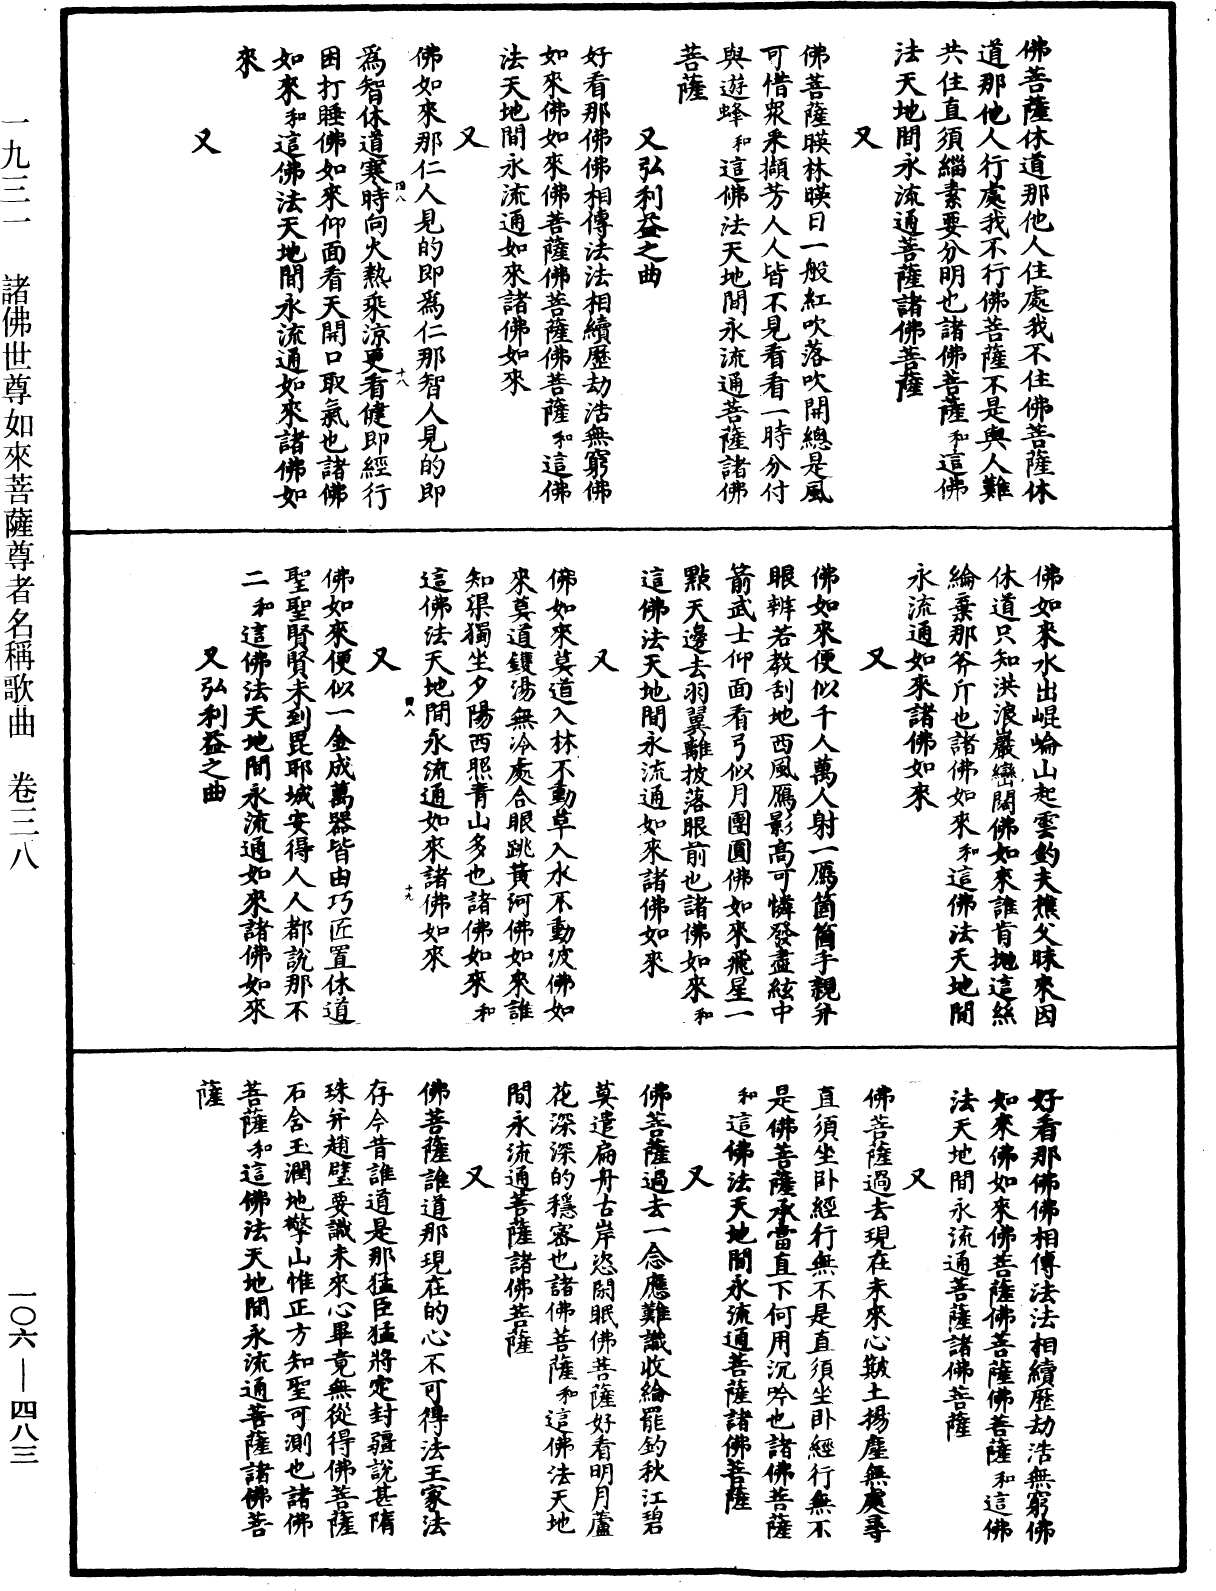 佛菩薩休道那他人住處我不住佛菩薩休
道那他人行處我不行佛菩薩不是與人難
共住直須緇素要分明也諸佛菩薩和這佛
法天地間永流通菩薩諸佛菩薩
又
佛菩薩暎林暎日一般紅吹落吹開總是風
可惜衆釆擷芳人人皆不見看看一時分付
與遊蜂和這佛法天地間永流通菩薩諸佛
菩薩
又弘利益之曲
好看那佛佛相傳法法相續歷劫浩無窮佛
如來佛如來佛菩薩佛菩薩佛菩薩和這佛
法天地間永流通如來諸佛如來
又
佛如來那仁人見的即爲仁那智人見的即
爲智休道寒時向火熱乘涼更看健即經行
困打睡佛如來仰面看天開口取氣也諸佛
如來和這佛法天地間永流通如來諸佛如
來
又
佛如來水出崐崘山起雲釣夫樵父昧來因
休道只知洪浪巖巒闊佛如來誰肯抛這絲
綸棄那斧斤也諸佛如來和這佛法天地間
永流通如來諸佛如來
又
佛如來便似千人萬人射一鴈箇箇手親弁
眼辨若教刮地西風鴈影高可憐發盡絃中
箭武士仰面看弓似月團圓佛如來飛星一
點天邊去羽翼離披落眼前也諸佛如來和
這佛法天地間永流通如來諸佛如來
又
佛如來莫道入林不動草入水不動波佛如
來莫道鑊湯無冷處合眼跳黃河佛如來誰
知渠獨坐夕陽西照青山多也諸佛如來和
這佛法天地間永流通如來諸佛如來
又
佛如來便似一金成萬器皆由巧匠置休道
聖聖賢賢未到毘耶城安得人人都說那不
二和這佛法天地間永流通如來諸佛如來
又弘利益之曲
好看那佛佛相傳法法相續歷劫浩無窮佛
如來佛如來佛菩薩佛菩薩佛菩薩和這佛
法天地間永流通菩薩諸佛菩薩
又
佛菩薩過去現在未來心皺土揚塵無處尋
直須坐卧經行無不是直須坐卧經行無不
是佛菩薩承當直下何用沉吟也諸佛菩薩
和這佛法天地間永流通菩薩諸佛菩薩
又
佛菩薩過去一念應難識收綸罷釣秋江碧
莫遣扁舟古岸恣閑眠佛菩薩好看明月蘆
花深深的穩審也諸佛菩薩和這佛法天地
間永流通菩薩諸佛菩薩
又
佛菩薩誰道那現在的心不可得法王家法
存今昔誰道是那猛臣猛將定封疆說甚隋
珠弁趙璧要識未來心畢竟無從得佛菩薩
石含玉潤地擎山惟正方知聖可測也諸佛
菩薩和這佛法天地間永流通菩薩諸佛菩
薩
一九三一 諸佛世尊如來菩薩尊者名稱歌曲 卷三八
一〇六—四八三
四八
十八
四八
十九